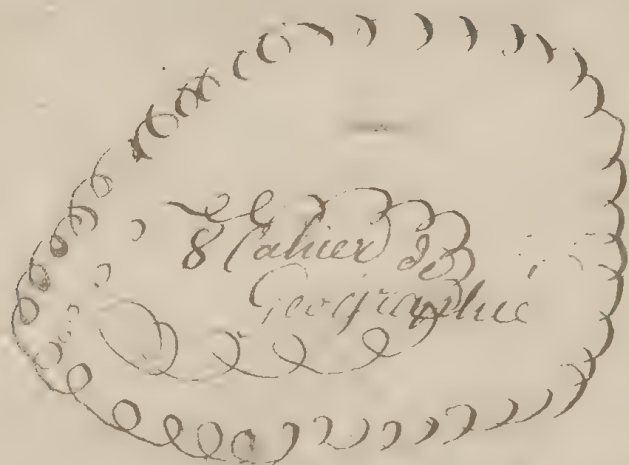 8 Cahier de
Geographie